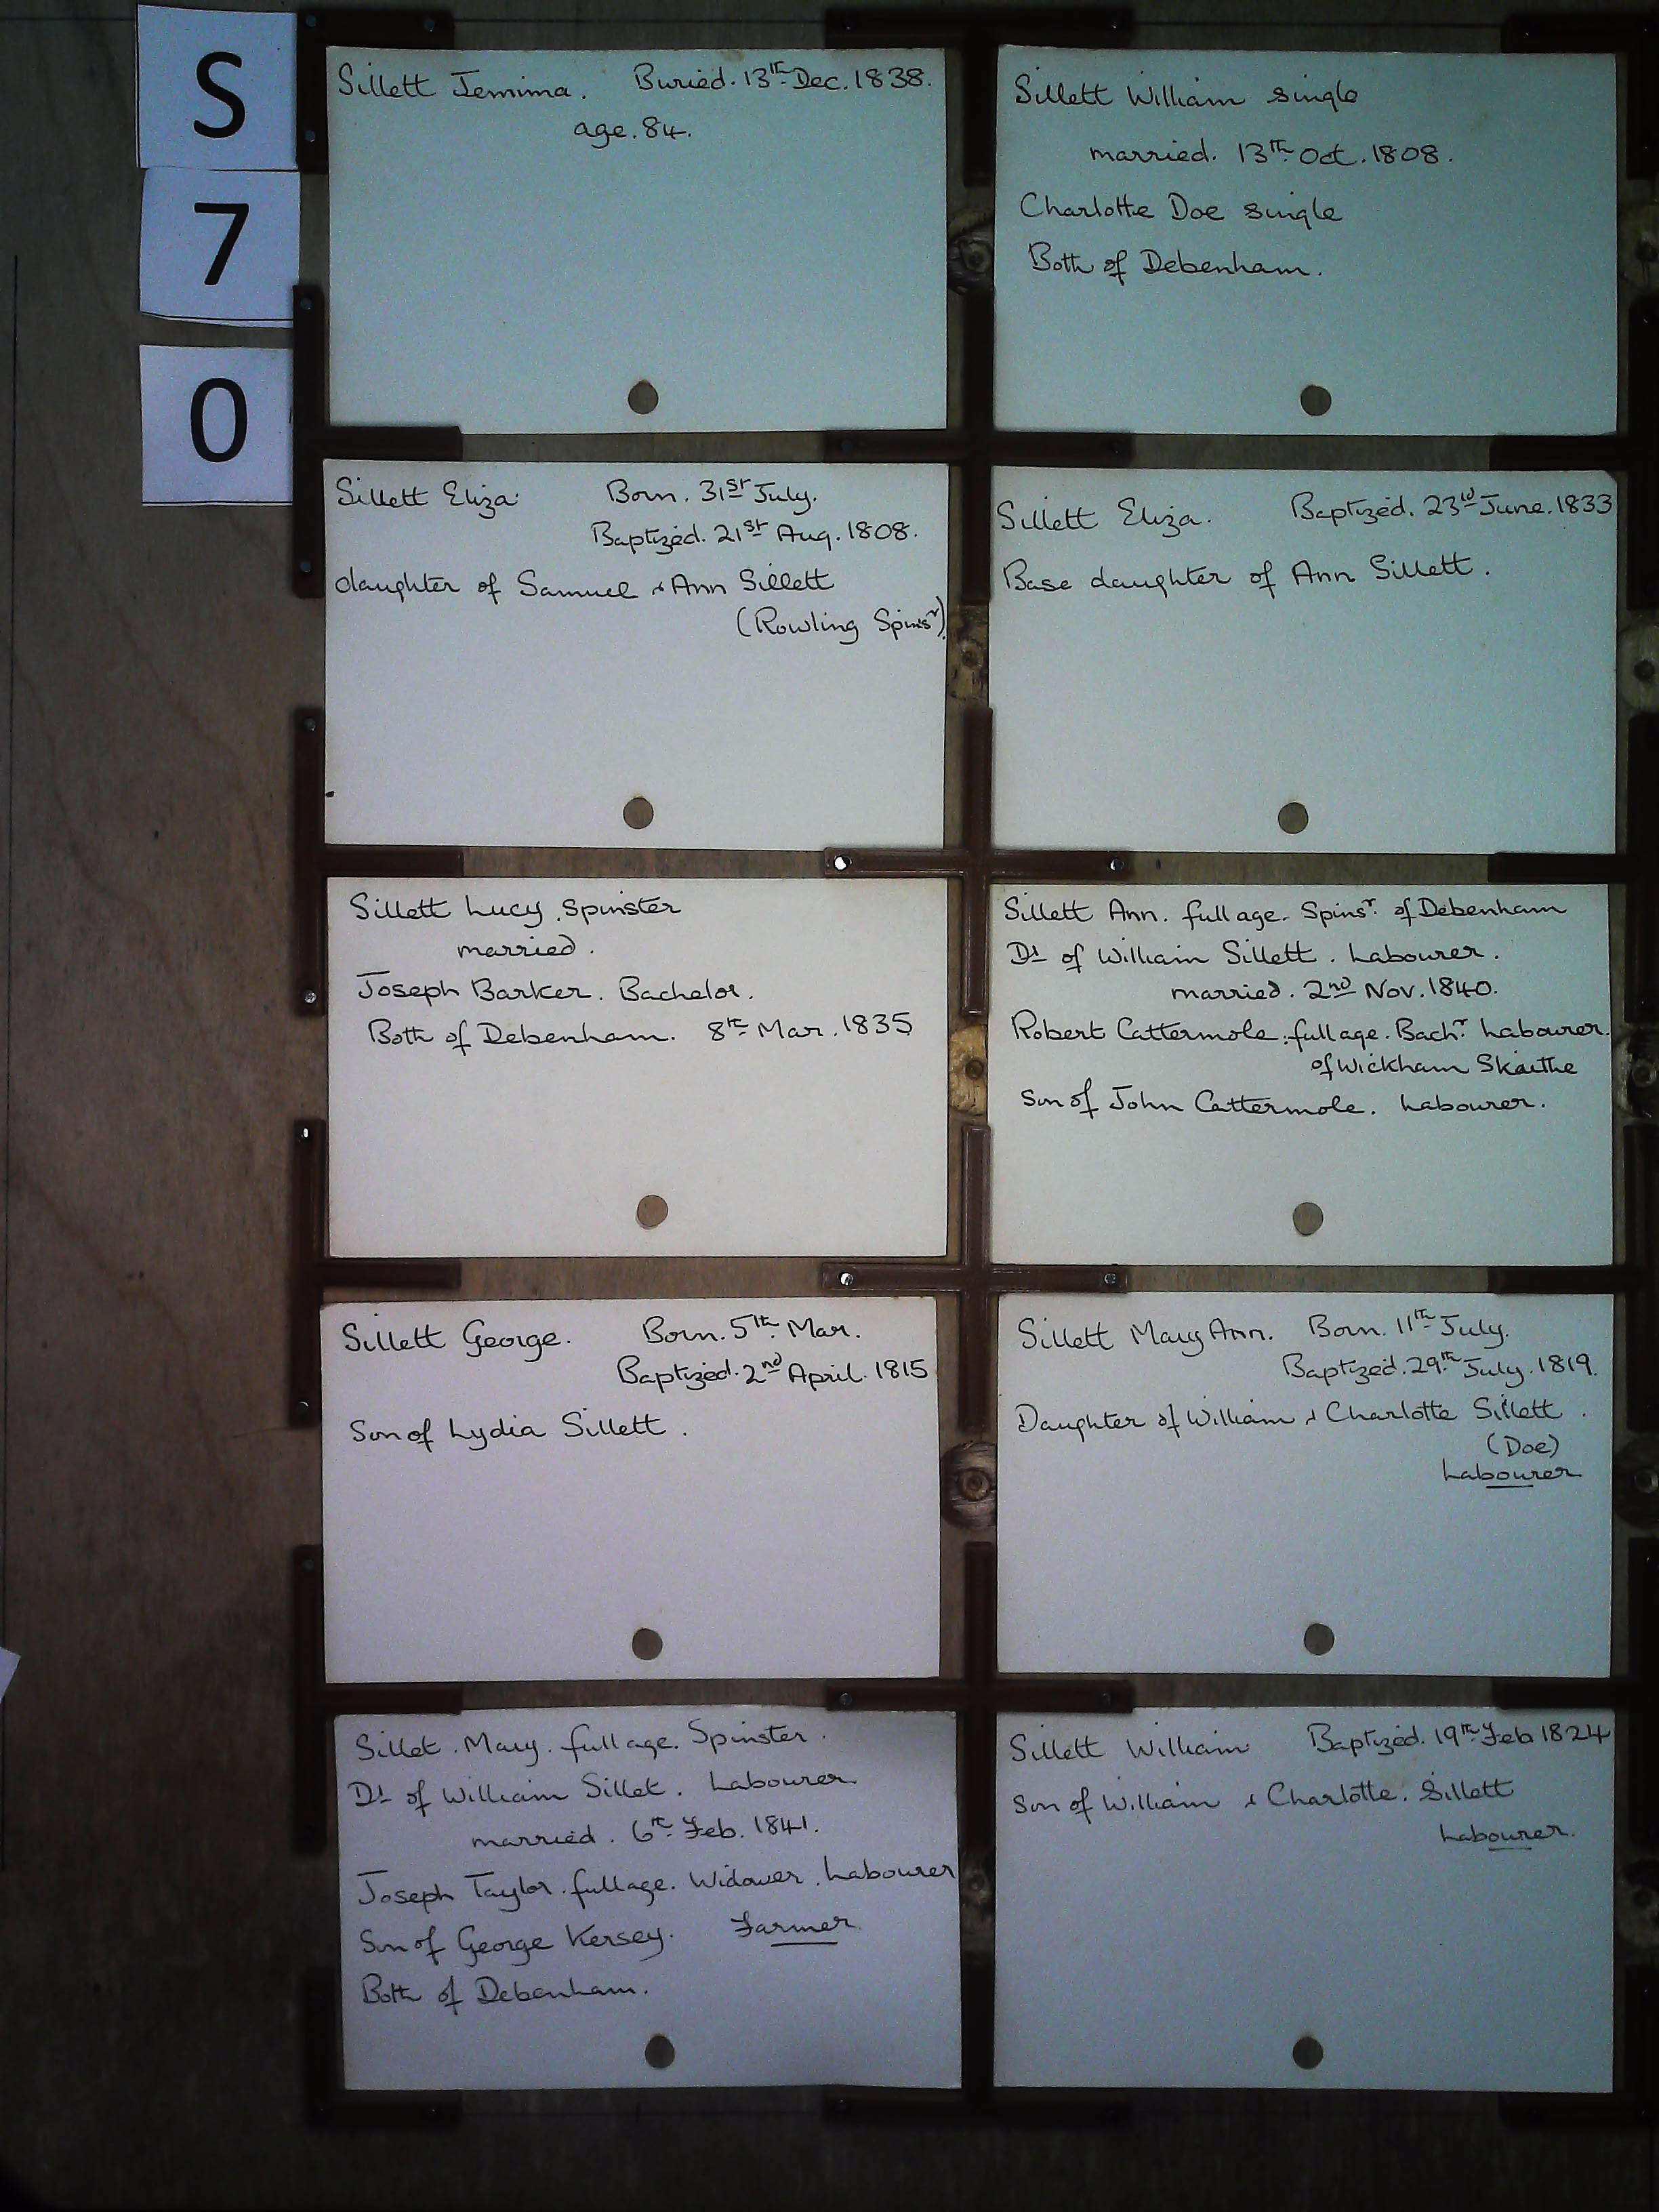 S
7
0
Sillett Jemima. Buried. 13th Dec. 1838.
age. 84.
Sillett William single
married. 13th Oct. 1808.
Charlotte Doe single
Both of Debenham.
Sillett Eliza Born. 31st July.
Baptized. 21st Aug. 1808.
daughter of Samuel & Ann Sillett
(Rowling Spinsr)
Sillett Eliza. Baptized. 23rd June. 1833
Base daughter of Ann Sillett.
Sillett Lucy. Spinster
married.
Joseph Barker. Bachelor.
Both of Debenham. 8th Mar. 1835
Sillett Ann. full age. Spinsr. of Debenham
Dr of William Sillett. Labourer.
married. 2nd Nov. 1840.
Robert Cattermole. full age. Bachr. Labourer.
of Wickham Skeithe
Son of John Cattermole. Labourer.
Sillett George. Born. 5th Mar.
Baptized. 2nd April. 1815
Son of Lydia Sillett.
Sillett Mary Ann. Born. 11th July.
Baptized. 29th July. 1819.
Daughter of William & Charlotte Sillett.
(Doe)
Labourer
Sillet. Mary. full age. Spinster.
Dr of William Sillet. Labourer
married. 6th Feb. 1841.
Joseph Taylor. full age. Widower. Labourer
Son of George Kersey. Farmer
Both of Debenham.
Sillett William Baptized. 19th Feb 1824
Son of William & Charlotte. Sillett
Labourer.